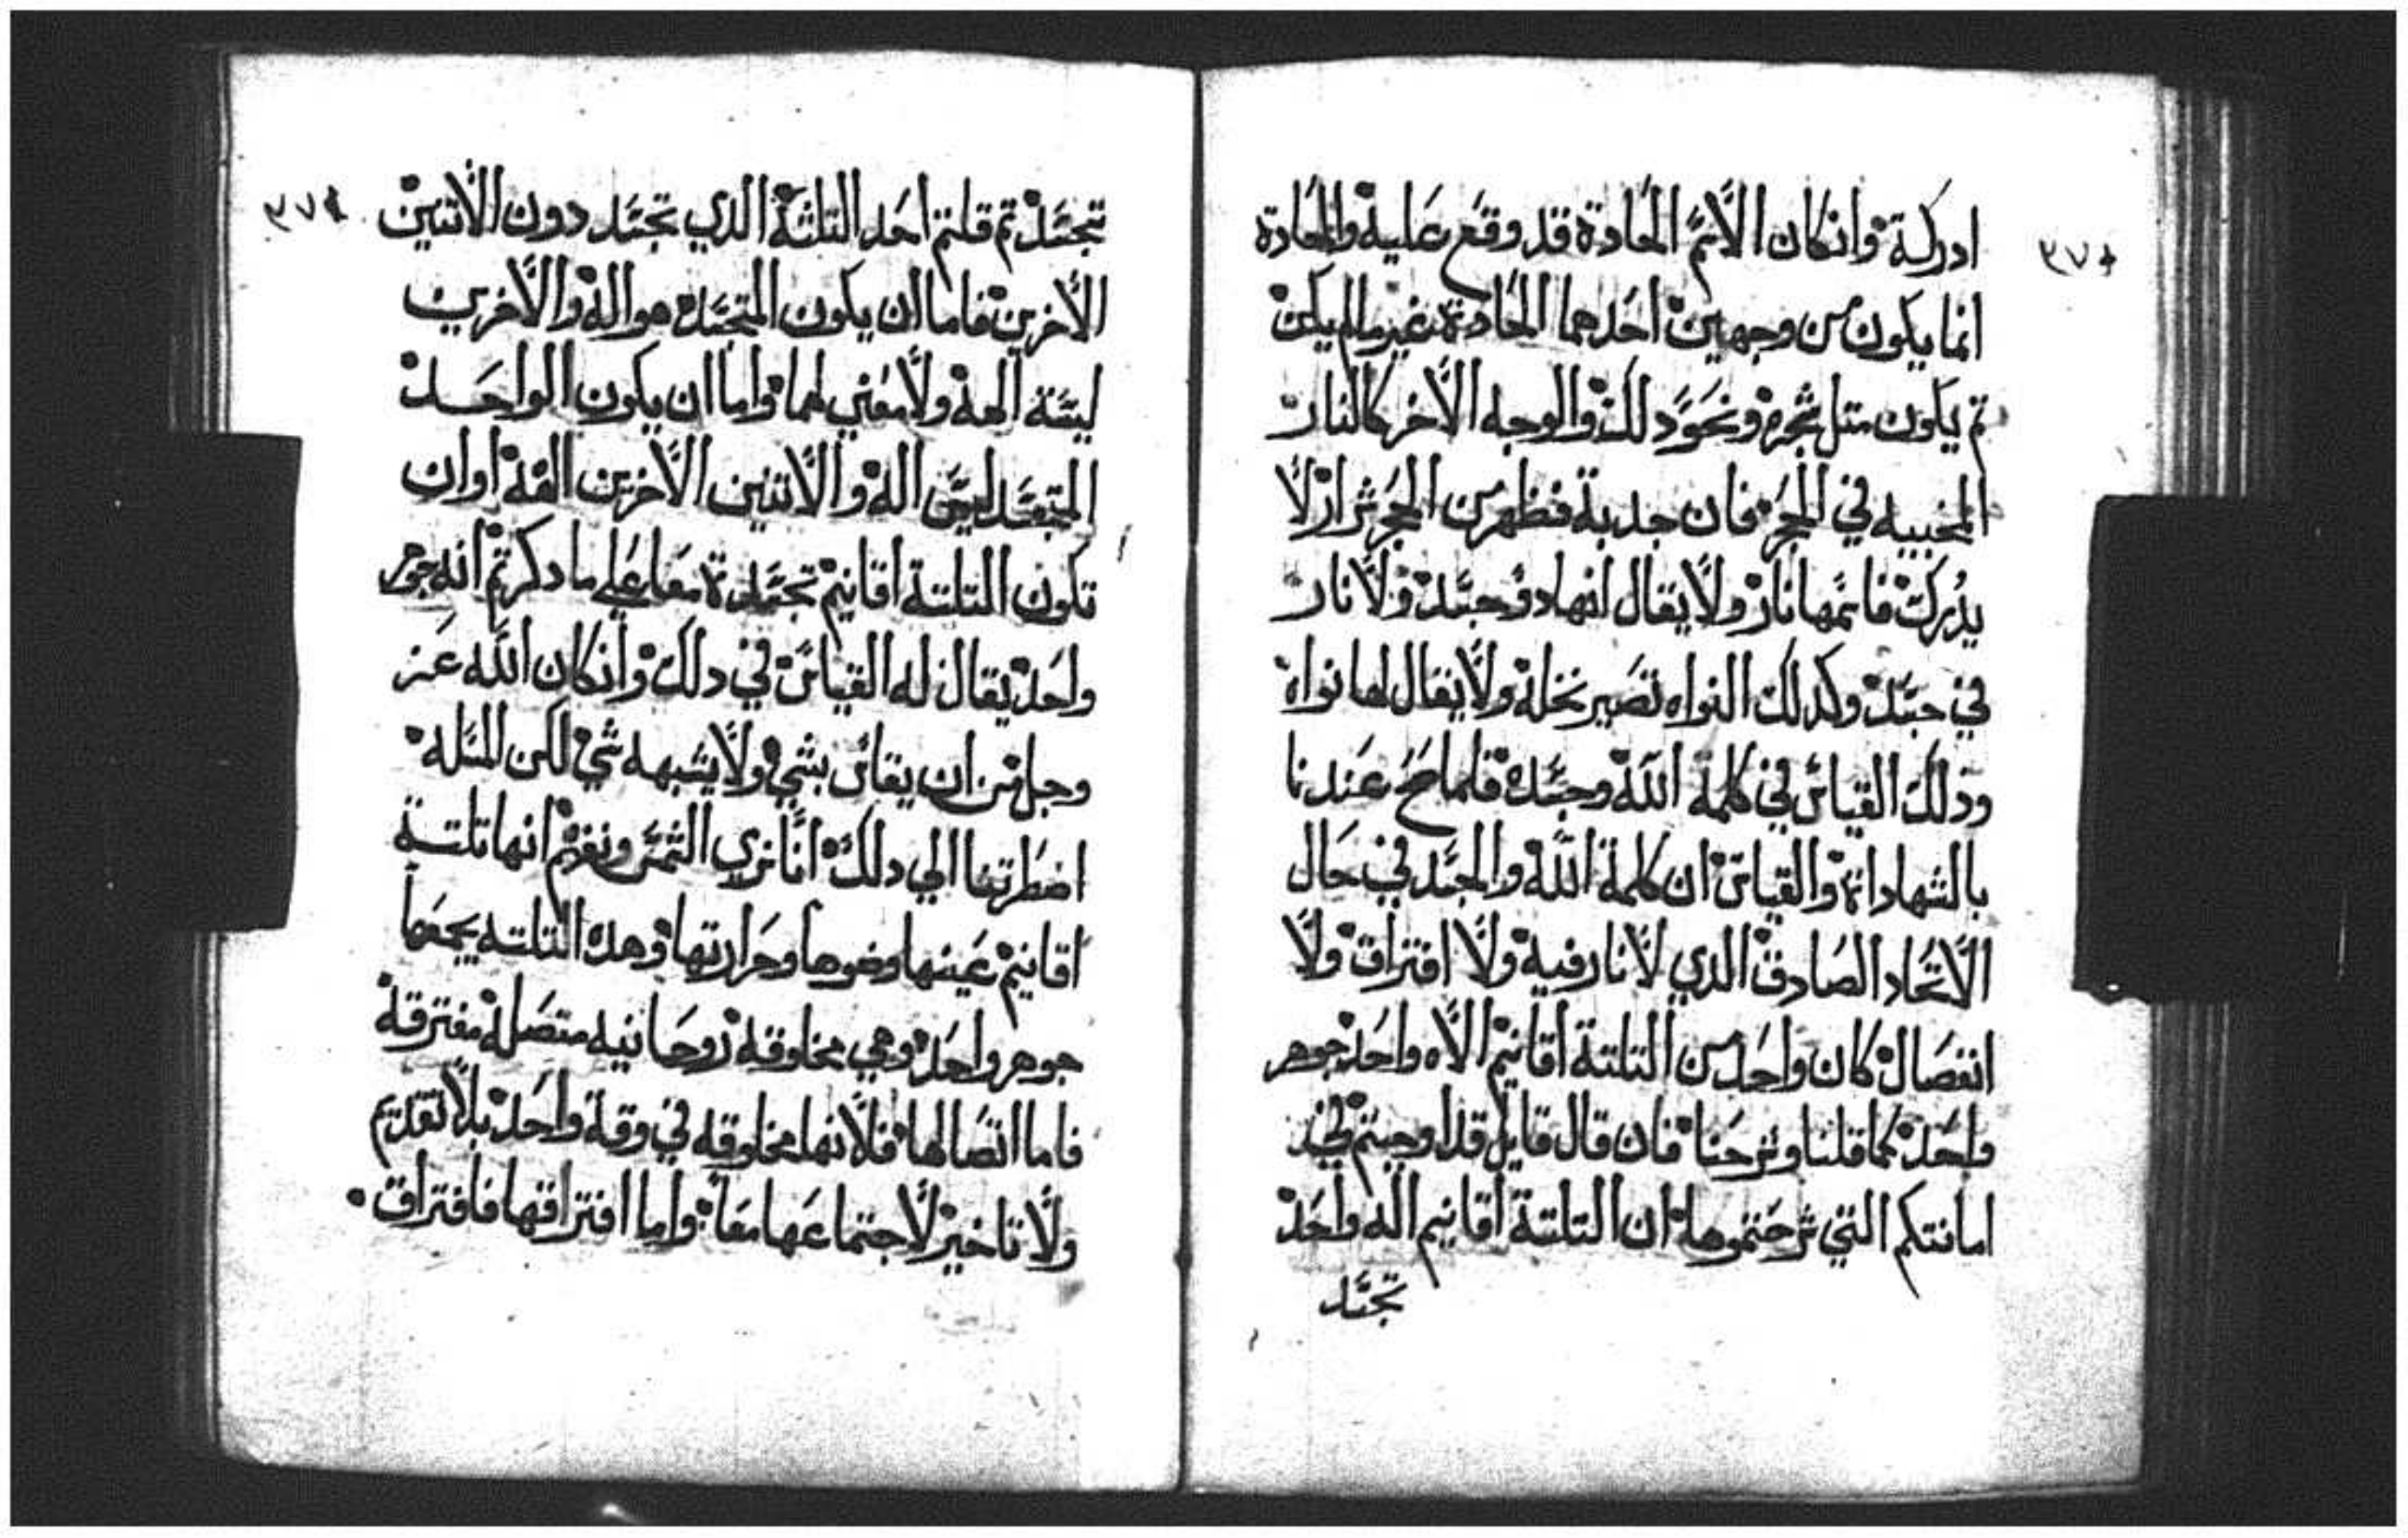 ٣٧٠
ادركة وانكان الاسم المحادة قد وقع عليه والمحادة
انما يكون من وجهين احدهما المحادثة غير مالم يكن
تم يكون متل شجره ونحو دلك والوجه الاخر كالنار
المخبيه في الحجر فان جدبة فظهر من الحجر شرار لا
يدرك فاسمها نار ولا يقال انها دو جسد ولا نار
في جسد وكدلك النواه تصير نخلة ولا يقال لها نواه
ودلك القياس في كلمة الله وجسده فلما صح عندنا
بالشهادات والقياس ان كلمة الله والجسد في حال
الاتحاد الصادق الدي لا نار فيه ولا افتراق ولا
انفصال كان واحد من التلتة اقانيم الاه واحد جوهر
واحد كما قلنا وشرحنا فان قال قايل قد اوجبتم في
امانتكم التي شرحتموها ان التلتة اقانيم اله واحد
تجسد
٣٧١
تجسد تم قلتم احد التلتة الدي تجسد دون الاتنين
الاخرين فاما ان يكون المتجسد هو اله والاخرين
ليسة الهة ولا معني لهما واما ان يكون الواحد
المتجسد ليس اله والاتنين الاخرين الهة او ان
تكون التلتة اقانيم تجسدة معا علي ما دكرتم انه جوهر
واحد يقال له القياس في دلك وانكان الله عز
وجل من ان يقاس بشي ولا يشبهه شي لكن المسله
اضطرتنا الي دلك انا نري الشمس ونعزم انها تلتة
اقانيم عينها وضوها وحرارتها وهده التلته يجمعها
جوهر واحد وهي مخلوقة روحانيه متصلة مفترقة
فاما اتصالها فلانها مخلوقه في وقة واحد بلا تقديم
ولا تاخير لاجتماعها معا واما افتراقها فافتراق